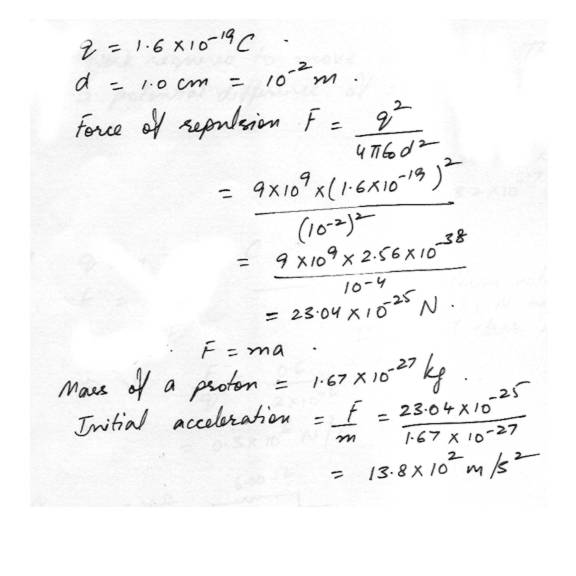 q = 1.6 x 10^-19 C .
d = 1.0 cm = 10^-2 m .
Force of repulsion F = q^2 / 4πε0d^2
= 9x10^9 x (1.6x10^-19)^2 / (10^-2)^2
= 9 x10^9 x 2.56 x 10^-38 / 10^-4
= 23.04 x 10^-25 N .
F = ma .
Mass of a proton = 1.67 x 10^-27 kg .
Initial acceleration = F/m = 23.04 x 10^-25 / 1.67 x 10^-27
= 13.8 x 10^2 m/s^2